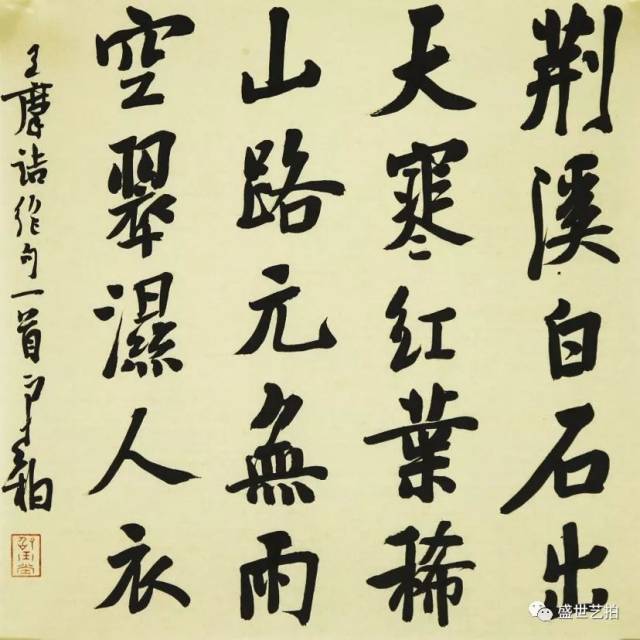 荆溪白石出
天寒红葉稀
山路元無雨
空翠濕人衣
王摩诘绝句一首
盛世艺拍